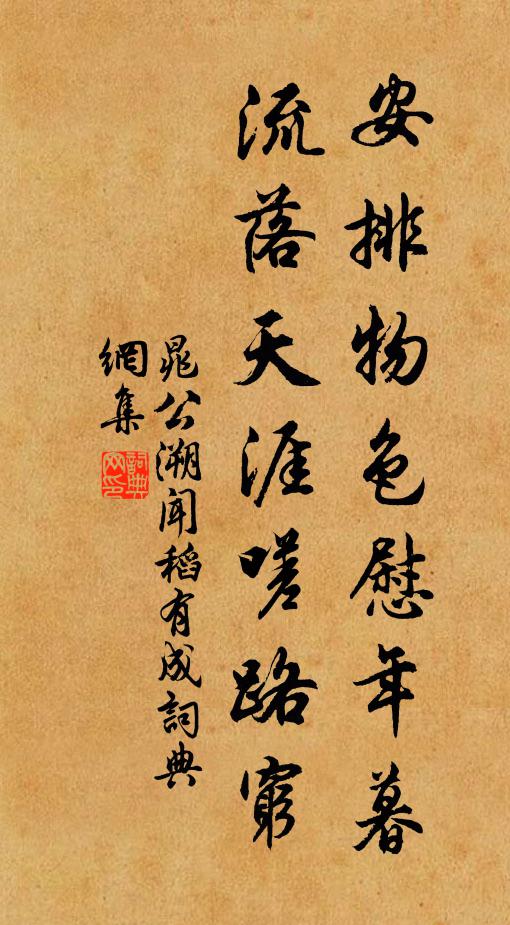 安排物色慰年暮
流落天涯嗟路窮
晁公溯聞稻有成詞典
網集
詞典網印